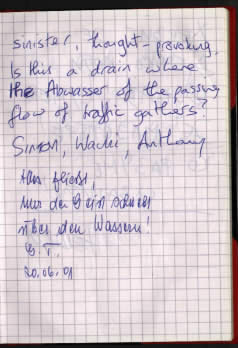 sinister, thought-provoking.
Is this a drain where
the Abwasser of the passing
flow of traffic gathers?
Simon, Wacki, Anthony
Alles fliesst,
nur der Geist schwebt
über den Wassern!
20.06.01